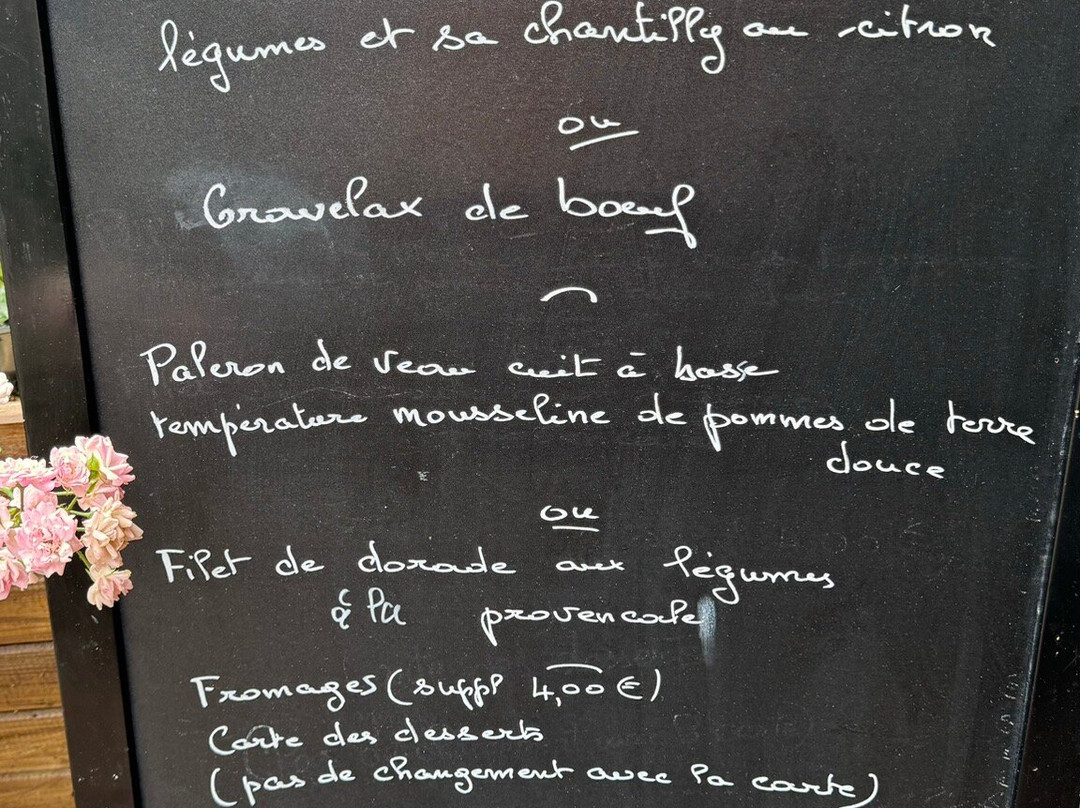 légumes et sa chantilly au citron
ou
Gravelax de bœuf
Paleron de veau cuit à basse
température mousseline de pommes de terre
douce
ou
Filet de dorade aux légumes
à la provencale
Fromages (suppl 4,00 €)
Carte des desserts
(pas de changement avec la carte)